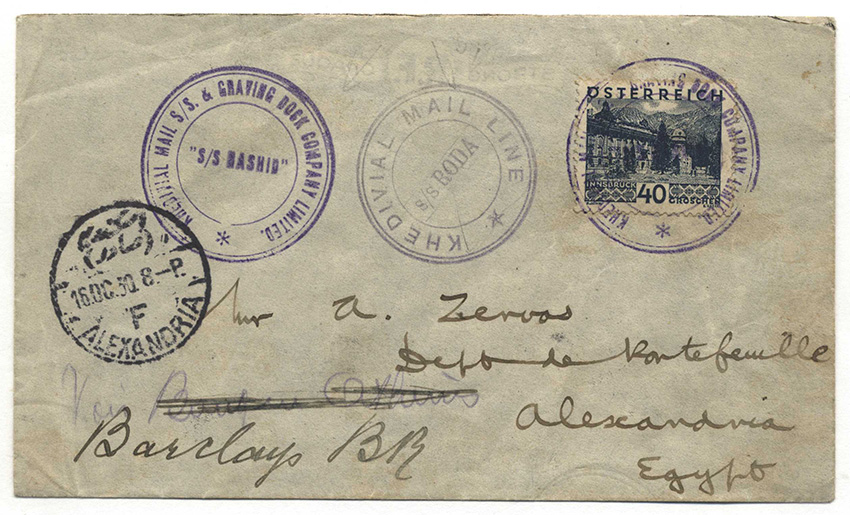 KHEDIVIAL MAIL S/S. & GRAVING DOCK COMPANY LIMITED.
"S/S RASHID"
*
KHEDIVIAL MAIL LINE *
S/S RODA
ÖSTERREICH
INNSBRUCK 40 GROSCHEN
DOCK COMPANY LIMITED.
*
16.OC.30. 8-P.
F
ALEXANDRIA
A. Zervos
Dept de Portefeuille
Alexandria
Egypt
Barclays BK